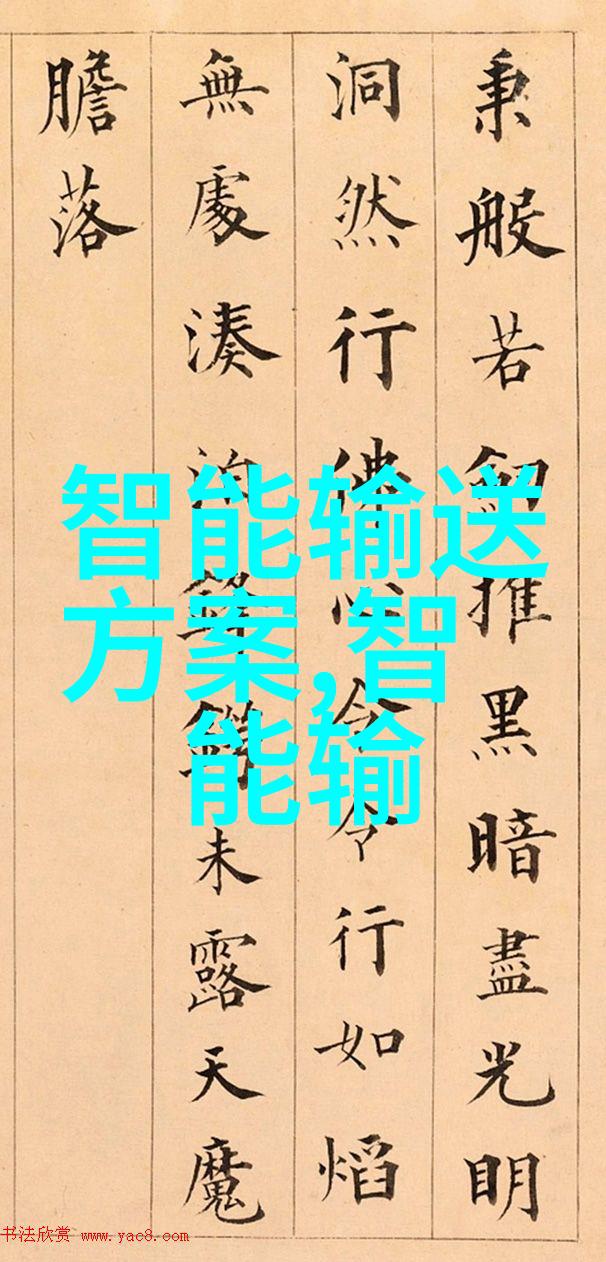 秉般若推黑暗盡光明
洞然行佛心令行如熖
無處湊泊未露天魔
膽落
智能输送
方案,智
能输
书法欣赏 www.yac8.com